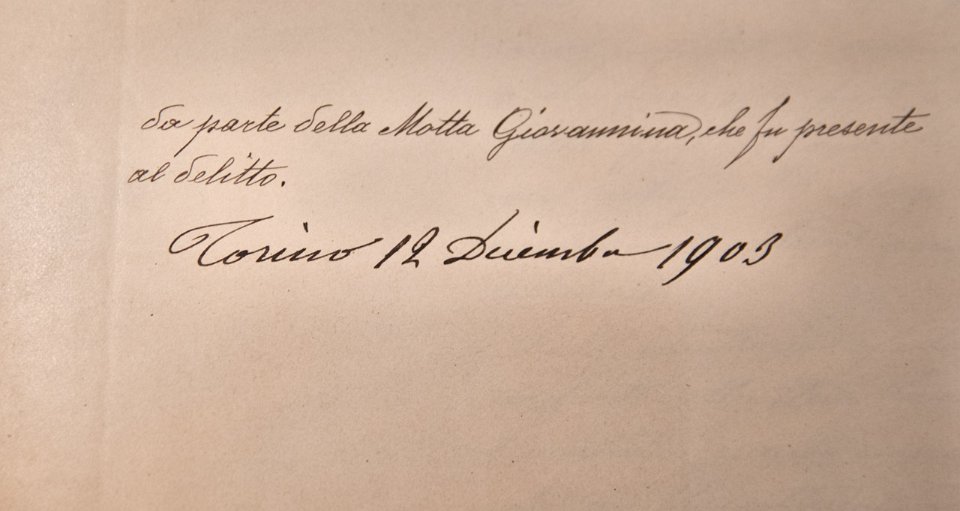 da parte della Motta Giovannina, che fu presente
al delitto.
Torino 12 Dicembre 1903